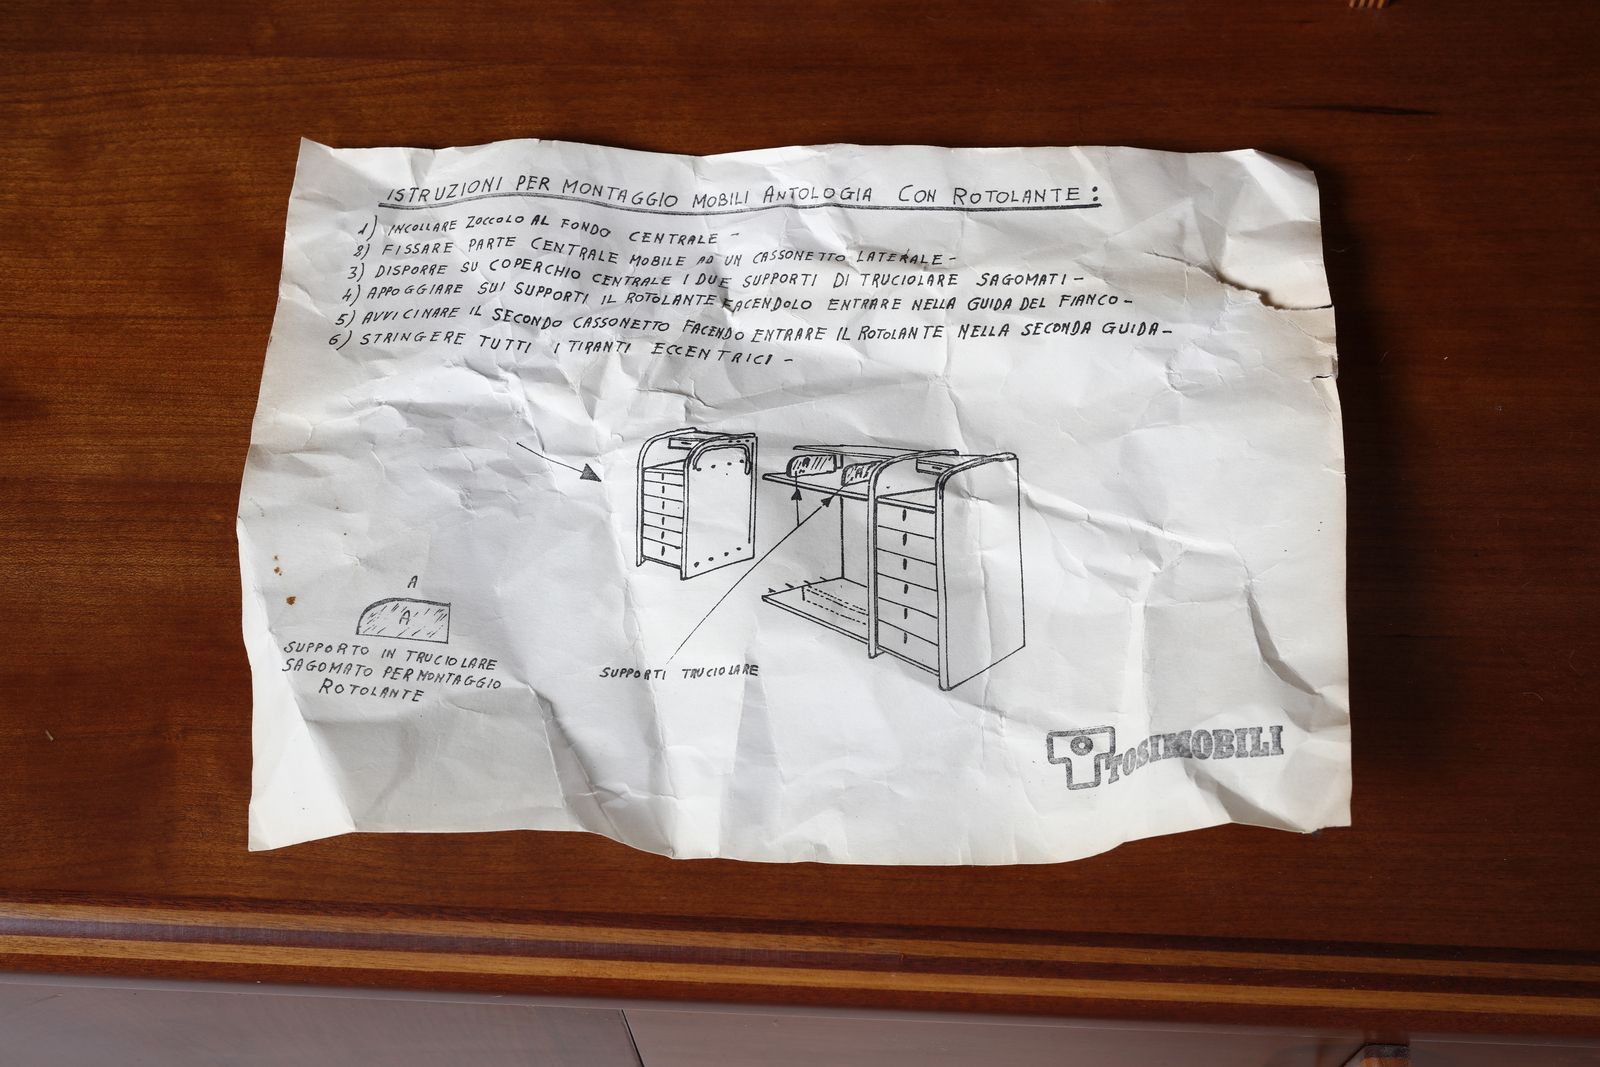 ISTRUZIONI PER MONTAGGIO MOBILI ANTOLOGIA CON ROTOLANTE:
1) INCOLLARE ZOCCOLO AL FONDO CENTRALE -
2) FISSARE PARTE CENTRALE MOBILE AD UN CASSONETTO LATERALE -
3) DISPORRE SU COPERCHIO CENTRALE I DUE SUPPORTI DI TRUCIOLARE SAGOMATI -
4) APPOGGIARE SUI SUPPORTI IL ROTOLANTE FACENDOLO ENTRARE NELLA GUIDA DEL FIANCO -
5) AVVICINARE IL SECONDO CASSONETTO FACENDO ENTRARE IL ROTOLANTE NELLA SECONDA GUIDA -
6) STRINGERE TUTTI I TIRANTI ECCENTRICI -
A
A
A
A
SUPPORTO IN TRUCIOLARE
SAGOMATO PER MONTAGGIO
ROTOLANTE
SUPPORTI TRUCIOLARE
TOSIMOBILI